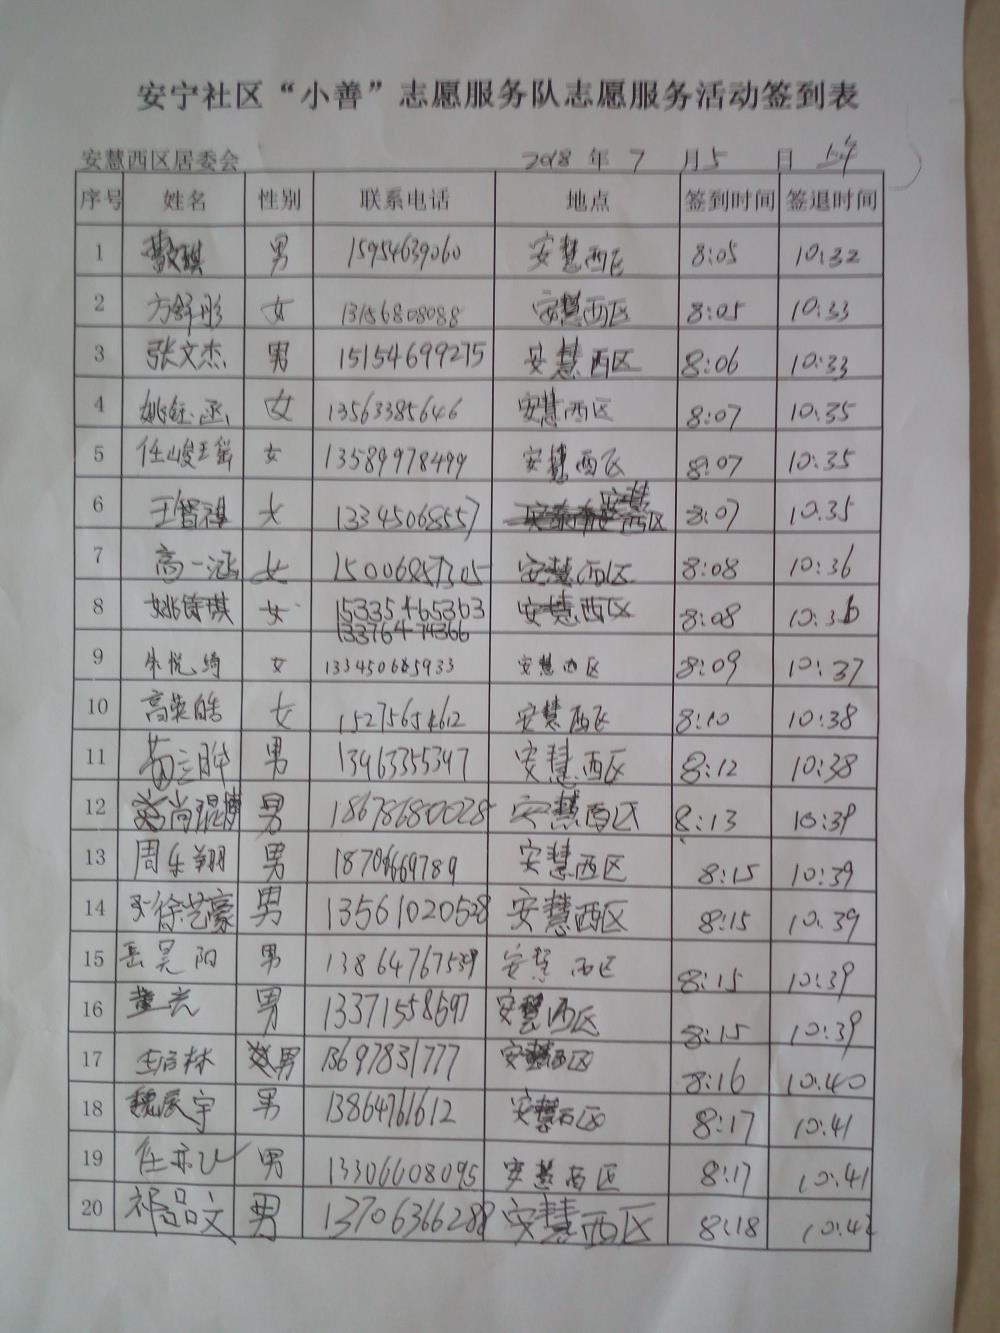 安宁社区“小善”志愿服务队志愿服务活动签到表
安慧西区居委会 2018 年 7 月 5 日 上午
序号 姓名 性别 联系电话 地点 签到时间 签退时间
1 男 15954639060 安慧西区 8:05 10:32
2 方舒彤 女 13156808088 安慧西区 8:05 10:33
3 张文杰 男 15154699275 安慧西区 8:06 10:33
4 姚钰函 女 13563385646 安慧西区 8:07 10:35
5 任峻瑶 女 13589978499 安慧西区 8:07 10:35
6 王智祺 女 13345068557 安慧西区 8:07 10:35
7 高一涵 女 15006857305 安慧西区 8:08 10:36
8 女 15335465363 安慧西区 8:08 10:36
13376474366
9 朱悦绮 女 133450685933 安慧西区 8:09 10:37
10 高英皓 女 15275654612 安慧西区 8:10 10:38
11 男 13463355397 安慧西区 8:12 10:38
12 尚琨博 男 18678680028 安慧西区 8:13 10:39
13 周乐翔 男 18706669789 安慧西区 8:15 10:39
14 徐艺豪 男 13561020528 安慧西区 8:15 10:39
15 岳昊阳 男 13864767539 安慧西区 8:15 10:39
16 男 13371558697 安慧西区 8:15 10:39
17 男 13697831777 安慧西区 8:16 10:40
18 魏辰宇 男 13864761612 安慧西区 8:17 10:41
19 男 13306608095 安慧西区 8:17 10:41
20 祁品文 男 13706366288 安慧西区 8:18 10:42